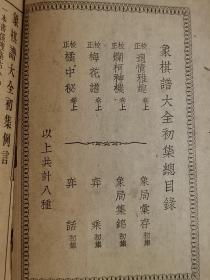 象棋譜大全初集總目錄
校正 適情雅趣 卷上
校正 爛柯神機 卷上
校正 梅花譜 卷上
校正 橘中秘 卷上
象局彙存 初集
象局集錦 初集
弈乘 初集
弈話 初集
以上共計八種
象棋譜大全初集例言